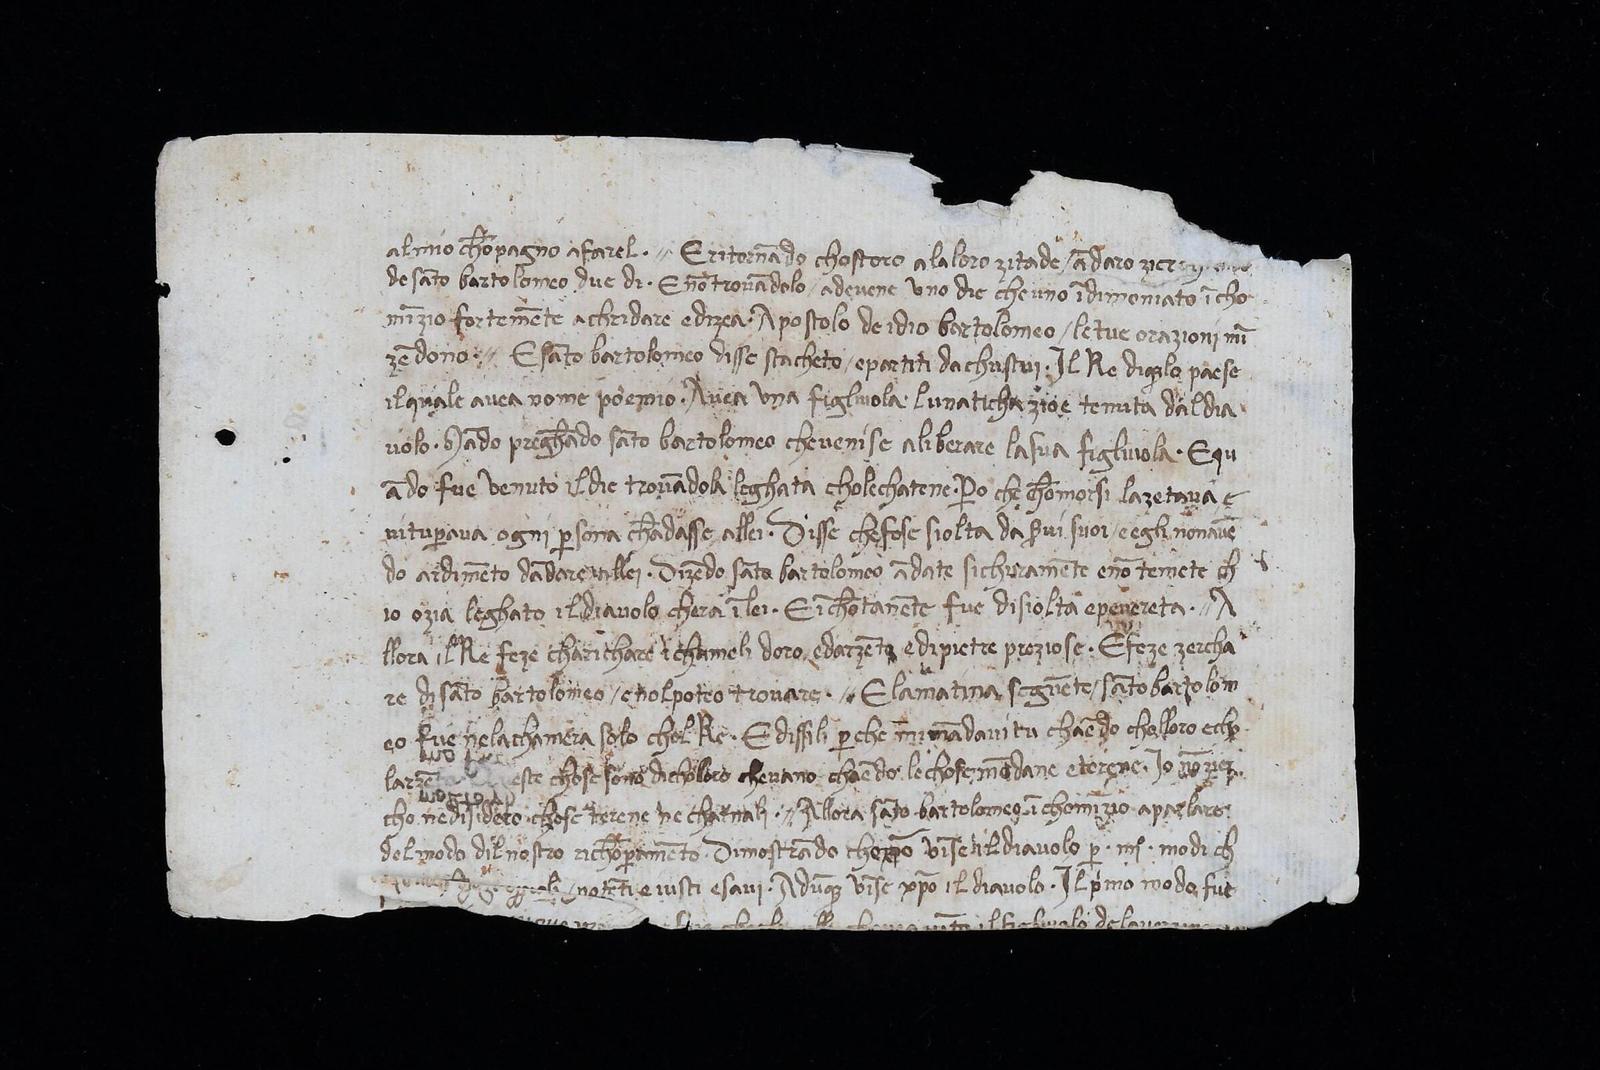 al mio cħōpagno afarel · // E ritornādo chostoro a la loro zitade / ādaro
de sāto bartolomeo due di · E nō trovādolo / adevene uno die che uno īdimoniato īcho
mīzio fortemēte a chridare e dizea · Apostolo de idio bartolomeo / le tue orazioni mi
zēdono · // E sāto bartolomeo disse sta cheto / e partiti da chustui · Il Re di q̄lo paese
il quale avea nome polemio · Avea una figliuola lunaticha zioe tenuta dal dia
volo · Mādo preghādo sāto bartolomeo che venise a liberare la sua figliuola · E qu
ādo fue venuto il die trovādola leghata chole chatene · Po che chō morsi lazerava e
vitup̄ava ogni p̄sona ch ādasse allei · Disse che fose siolta da s̄vi suoi / e egli non avē
do ardimēto dādare allei · Dizēdo sāto bartolomeo ādate sichuramēte e nō temete cħ
io o zia leghato il diavolo chera ī lei · E īchōtanēte fue disiolta e penereta · // A
llora il Re feze charichare i chameli doro e darzēto e di pietre preziose · E feze zercha
re di sāto bartolomeo / e nol poteo trovare · // E la matina seguēte / sāto bartolom
eo fue ne la chamera solo chol Re · E dissili p̄ che mi mādavi tu chaēdo cholloro e chol
larzē este chose sono di choloro che vano chaēdo le chose mōdane e terene · Io nō
cho ne disidero chose terene ne charnali · // Allora sāto bartolomeo īchomizio a parlare
del modo dil nostro richōp̄amēto · Dimostrādo che xp̄o vīse il diavolo p̄ · iiij · modi cħ
potēti e iusti e savi · Adūq̄ vīse xp̄o il diavolo · Il p̄mo modo fue
il figliuolo de la